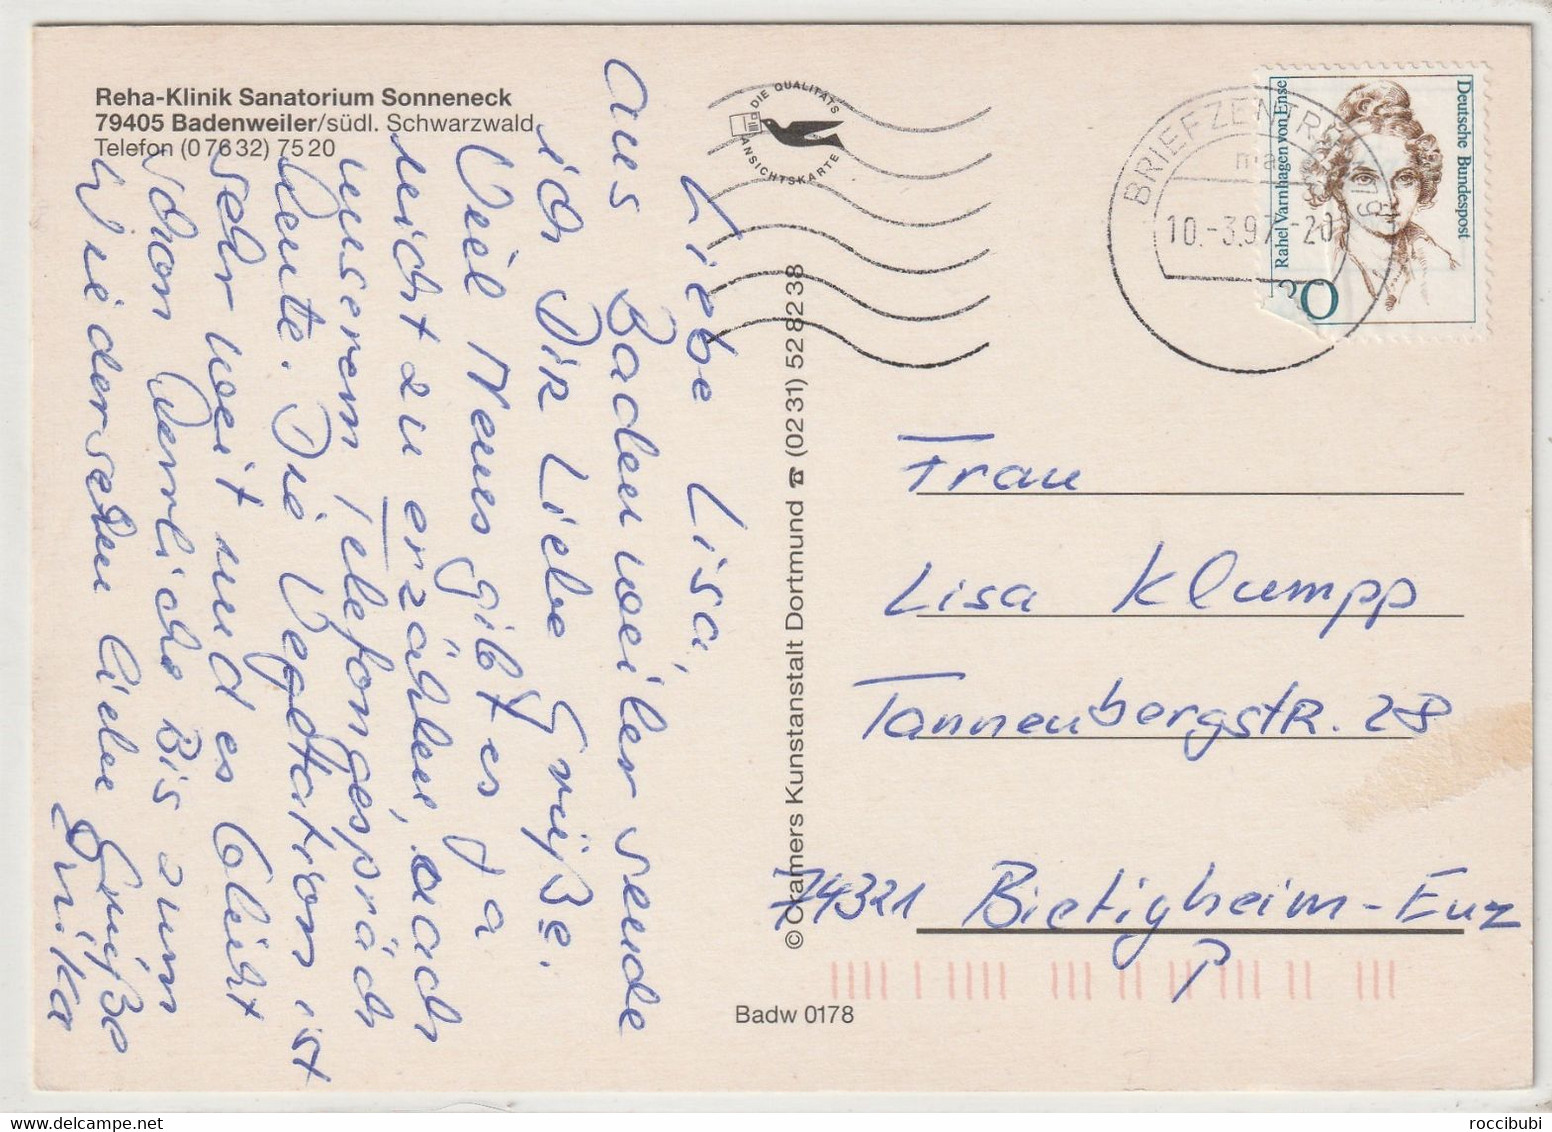 Reha-Klinik Sanatorium Sonneneck
79405 Badenweiler/südl. Schwarzwald
Telefon (0 76 32) 75 20
Liebe Lisa,
aus Badenweiler sende
ich Dir Liebe Grüße.
Viel Neues gibt es ja
nicht zu erzählen, nach
unserem Telefongespräch
heute. Die Vegetation ist
sehr weit und es blüht
schon Bis zum
Wiedersehen liebe Grüße
Erika
DIE QUALITÄTS
ANSICHTSKARTE
© Cramers Kunstanstalt Dortmund ☎ (02 31) 52 82 38
Badw 0178
BRIEFZENTRUM 79
10.-3.97-20
Rahel Varnhagen von Ense
Deutsche Bundespost
Frau
Lisa Klumpp
Tannenbergstr. 28
74321 Bietigheim-Enz
roccibubi